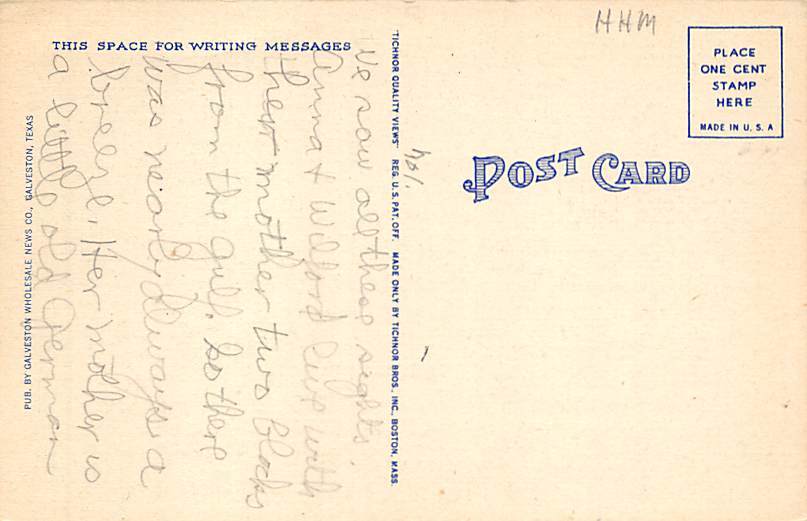 HHM
THIS SPACE FOR WRITING MESSAGES
We saw all these sights.
Anna & Wilford live with
their mother two blocks
from the gulf. So there
was nearly always a
breeze. Her mother is
a little old German
PUB. BY GALVESTON WHOLESALE NEWS CO., GALVESTON, TEXAS
"TICHNOR QUALITY VIEWS" REG. U. S. PAT. OFF. MADE ONLY BY TICHNOR BROS., INC., BOSTON, MASS.
POST CARD
PLACE
ONE CENT
STAMP
HERE
MADE IN U. S. A